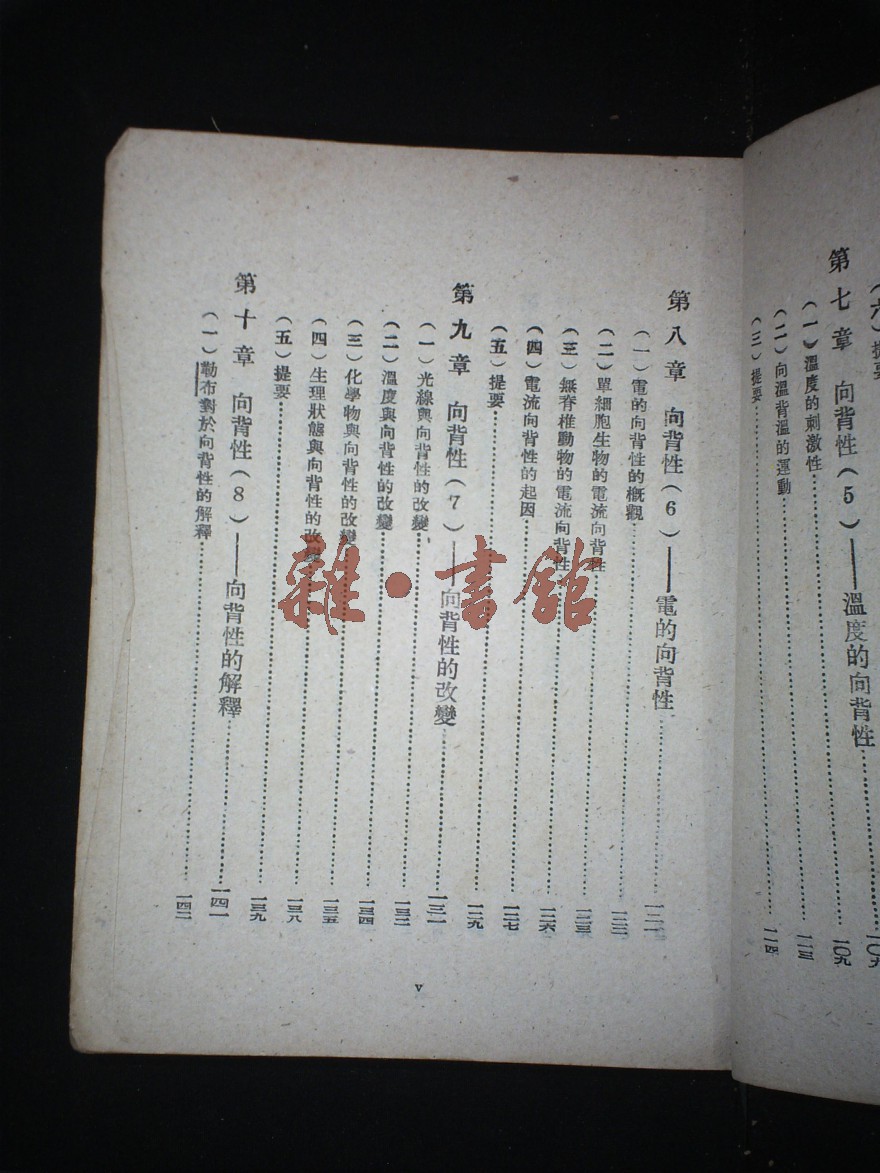 (六)提要
第七章 向背性(5)——溫度的向背性……一〇九
(一)溫度的刺激性……一〇九
(二)向溫背溫的運動……一一三
(三)提要……一一四
第八章 向背性(6)——電的向背性……一二一
(一)電的向背性的概觀……
(二)單細胞生物的電流向背性……一二三
(三)無脊椎動物的電流向背性……一二六
(四)電流向背性的起因……一二七
(五)提要……一二九
第九章 向背性(7)——向背性的改變……一三一
(一)光線與向背性的改變……一三二
(二)溫度與向背性的改變……一三四
(三)化學物與向背性的改變……一三五
(四)生理狀態與向背性的改變……一三八
(五)提要……一三九
第十章 向背性(8)——向背性的解釋……一四一
(一)勒布對於向背性的解釋……一四二
v
雜·書館